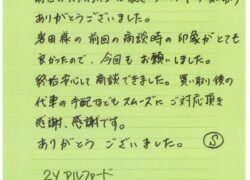 ありがとうございました。
岩田様の前回の商談時の印象がとても
良かたので、今回も お願いしました。
終始安心して商談できました。買い取り後の
代車の手配などもスムーズに ご対応頂き
感謝、感謝です。
ありがとう ございました。 Ⓢ
2Y アルファード